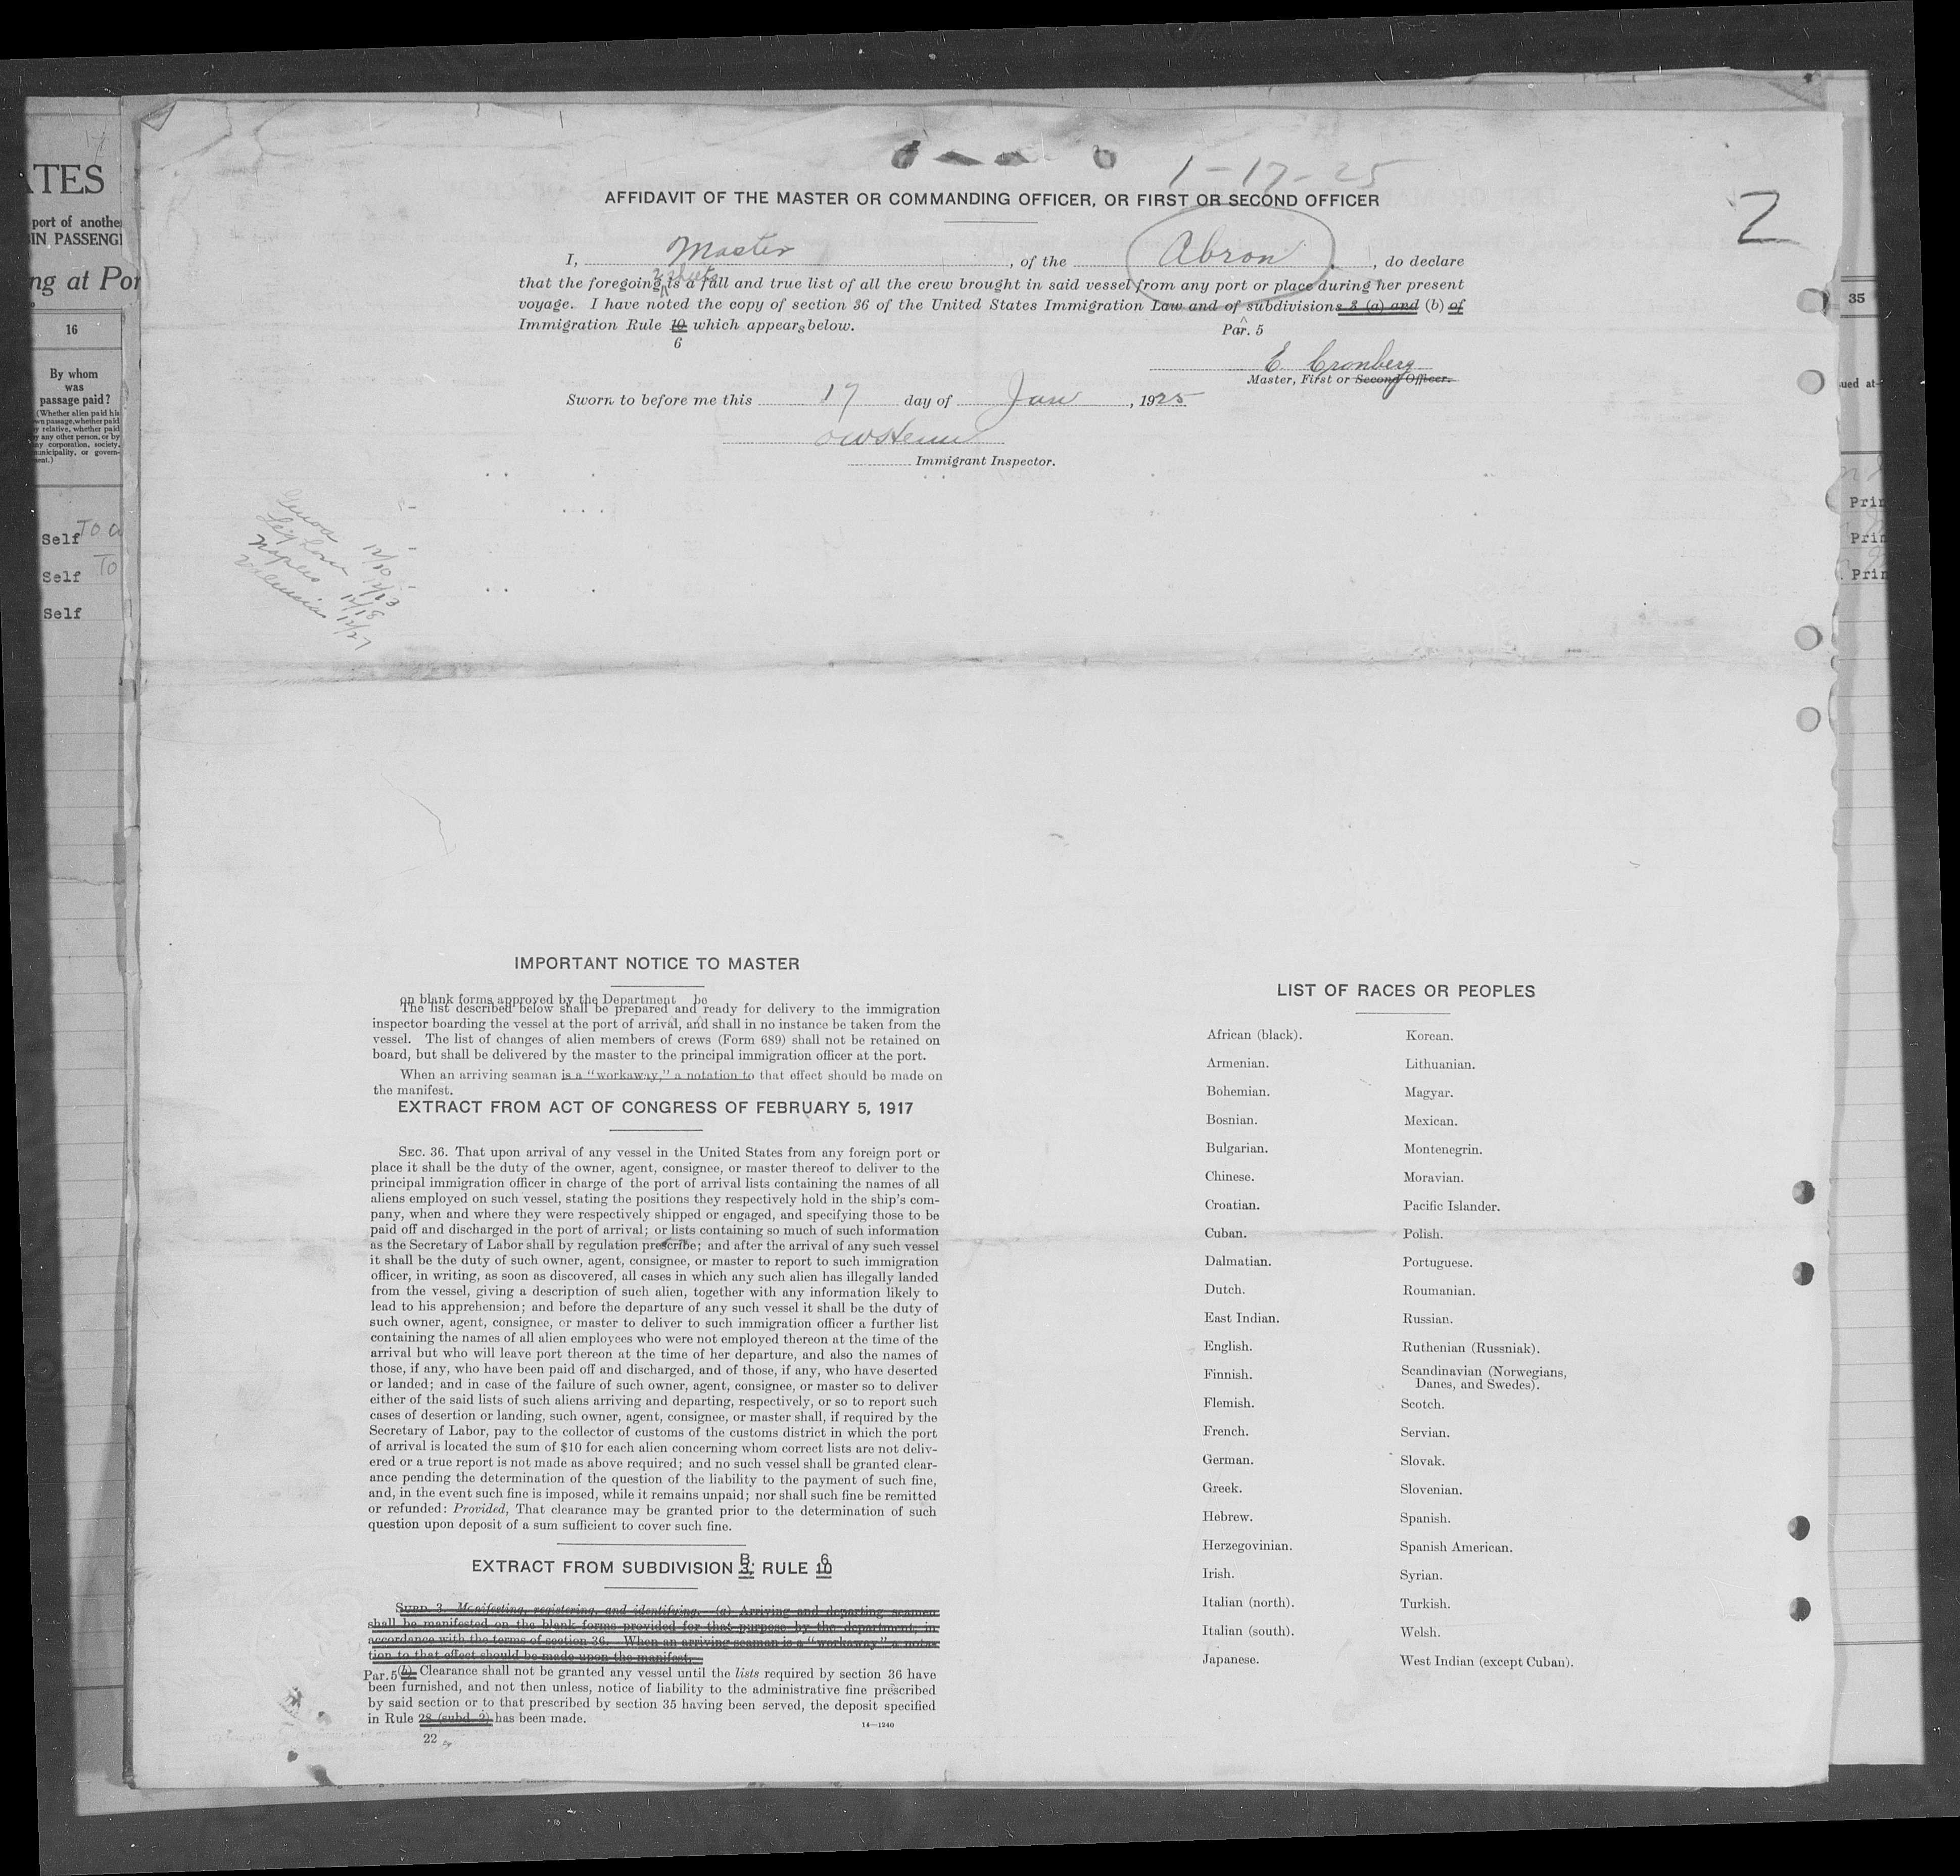 1-17-25
AFFIDAVIT OF THE MASTER OR COMMANDING OFFICER, OR FIRST OR SECOND OFFICER
2
I, Master, of the Abron, do declare
2 sheets
that the foregoing is a full and true list of all the crew brought in said vessel from any port or place during her present
voyage. I have noted the copy of section 36 of the United States Immigration Law and of subdivisions 3 (a) and (b) of
Immigration Rule 10 which appears below.
Par. 5
6
E. Cronberg
Master, First or Second Officer.
Sworn to before me this 17 day of Jan, 1925
Immigrant Inspector.
Genoa 12/10
Leghorn 12/13
Naples 12/18
Valencia 12/27
IMPORTANT NOTICE TO MASTER
on blank forms approved by the Department be
The list described below shall be prepared and ready for delivery to the immigration
inspector boarding the vessel at the port of arrival, and shall in no instance be taken from the
vessel. The list of changes of alien members of crews (Form 689) shall not be retained on
board, but shall be delivered by the master to the principal immigration officer at the port.
When an arriving seaman is a "workaway," a notation to that effect should be made on
the manifest.
EXTRACT FROM ACT OF CONGRESS OF FEBRUARY 5, 1917
SEC. 36. That upon arrival of any vessel in the United States from any foreign port or
place it shall be the duty of the owner, agent, consignee, or master thereof to deliver to the
principal immigration officer in charge of the port of arrival lists containing the names of all
aliens employed on such vessel, stating the positions they respectively hold in the ship's com-
pany, when and where they were respectively shipped or engaged, and specifying those to be
paid off and discharged in the port of arrival; or lists containing so much of such information
as the Secretary of Labor shall by regulation prescribe; and after the arrival of any such vessel
it shall be the duty of such owner, agent, consignee, or master to report to such immigration
officer, in writing, as soon as discovered, all cases in which any such alien has illegally landed
from the vessel, giving a description of such alien, together with any information likely to
lead to his apprehension; and before the departure of any such vessel it shall be the duty of
such owner, agent, consignee, or master to deliver to such immigration officer a further list
containing the names of all alien employees who were not employed thereon at the time of the
arrival but who will leave port thereon at the time of her departure, and also the names of
those, if any, who have been paid off and discharged, and of those, if any, who have deserted
or landed; and in case of the failure of such owner, agent, consignee, or master so to deliver
either of the said lists of such aliens arriving and departing, respectively, or so to report such
cases of desertion or landing, such owner, agent, consignee, or master shall, if required by the
Secretary of Labor, pay to the collector of customs of the customs district in which the port
of arrival is located the sum of $10 for each alien concerning whom correct lists are not deliv-
ered or a true report is not made as above required; and no such vessel shall be granted clear-
ance pending the determination of the question of the liability to the payment of such fine,
and, in the event such fine is imposed, while it remains unpaid; nor shall such fine be remitted
or refunded: Provided, That clearance may be granted prior to the determination of such
question upon deposit of a sum sufficient to cover such fine.
B 6
EXTRACT FROM SUBDIVISION 3, RULE 10
SUBD. 3. Manifesting, registering, and identifying. (a) Arriving and departing seamen
shall be manifested on the blank forms provided for that purpose by the department, in
accordance with the terms of section 36. When an arriving seaman is a "workaway" a nota-
tion to that effect should be made upon the manifest.
Par. 5 (b) Clearance shall not be granted any vessel until the lists required by section 36 have
been furnished, and not then unless, notice of liability to the administrative fine prescribed
by said section or to that prescribed by section 35 having been served, the deposit specified
in Rule 28 (subd. 2) has been made.
14—1240
22
LIST OF RACES OR PEOPLES
African (black).
Armenian.
Bohemian.
Bosnian.
Bulgarian.
Chinese.
Croatian.
Cuban.
Dalmatian.
Dutch.
East Indian.
English.
Finnish.
Flemish.
French.
German.
Greek.
Hebrew.
Herzegovinian.
Irish.
Italian (north).
Italian (south).
Japanese.
Korean.
Lithuanian.
Magyar.
Mexican.
Montenegrin.
Moravian.
Pacific Islander.
Polish.
Portuguese.
Roumanian.
Russian.
Ruthenian (Russniak).
Scandinavian (Norwegians,
Danes, and Swedes).
Scotch.
Servian.
Slovak.
Slovenian.
Spanish.
Spanish American.
Syrian.
Turkish.
Welsh.
West Indian (except Cuban).
ATES
port of anothe
IN PASSENG
ng at Por
16
By whom
was
passage paid?
(Whether alien paid his
wn passage, whether paid
y relative, whether paid
y any other person, or by
ny corporation, society,
municipality, or govern-
ment.)
Self To
Self To
Self
35
ued at—
Prin
Prin
Prin